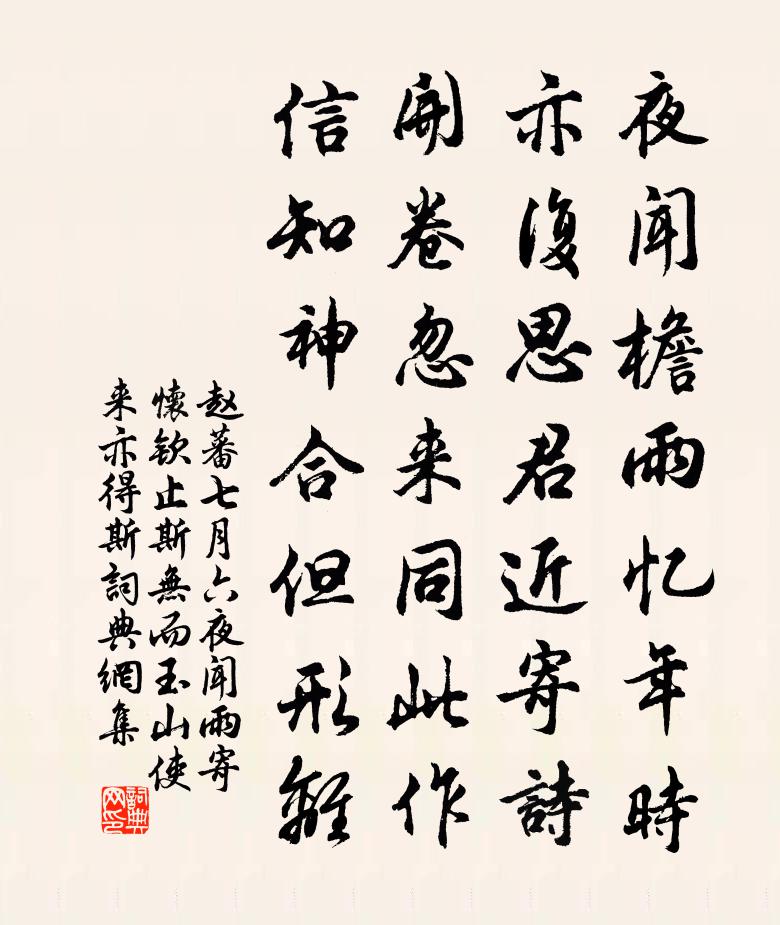 夜闻檐雨忆年時
亦復思君近寄詩
開卷忽来同此作
信知神合但形離
赵蕃七月六夜闻雨寄
懷欽止斯無而玉山使
来亦得斯詞典網集
詞典网印